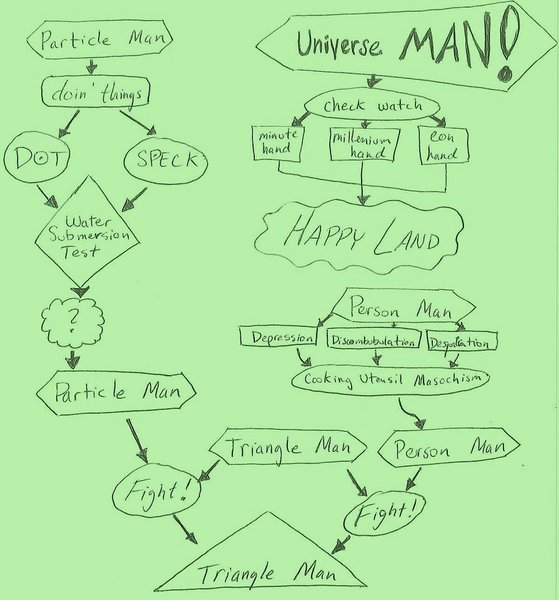 Particle Man
doin' things
DOT
SPECK
Water
Submersion
Test
?
Particle Man
Universe MAN!
check watch
minute
hand
millenium
hand
eon
hand
HAPPY LAND
Person Man
Depression
Discombubulation
Desperation
Cooking Utensil Masochism
Triangle Man
Person Man
Fight!
Fight!
Triangle Man